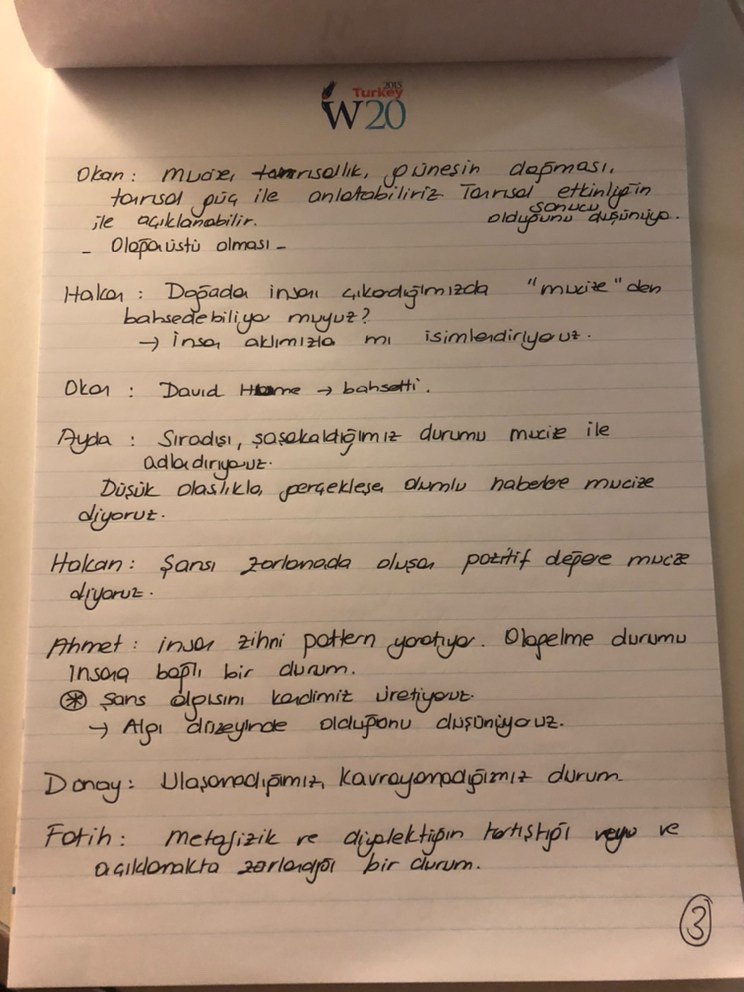 2015
Turkey
W20
Okan : Mucize, tanrısallık, güneşin doğması,
tanrısal güç ile anlatabiliriz Tanrısal etkinliğin
sonucu
ile açıklanabilir. olduğunu düşünüyo.
- Olağanüstü olması -
Hakan : Doğadan insanı çıkardığımızda "mucize" den
bahsedebiliyo muyuz?
→ İnsan aklımızla mı isimlendiriyouz.
Okan : David Hume → bahsetti.
Ayda : Sıradışı, şaşakaldığımız durumu mucize ile
adladırıyouz.
Düşük olasılıkla, gerçekleşen olumlu haberlere mucize
diyoruz.
Hakan : Şansı zorlamada oluşan pozitif değere mucize
diyoruz.
Ahmet : insan zihni pattern yaratıyor. Olagelme durumu
insana bağlı bir durum.
* Şans algısını kendimiz üretiyouz.
→ Algı düzeyinde olduğunu düşünüyouz.
Donay : Ulaşamadığımız, kavrayamadığımız durum
Fatih : Metafizik ve diyalektiğin tartıştığı ve
açıklamakta zorlandığı bir durum.
3